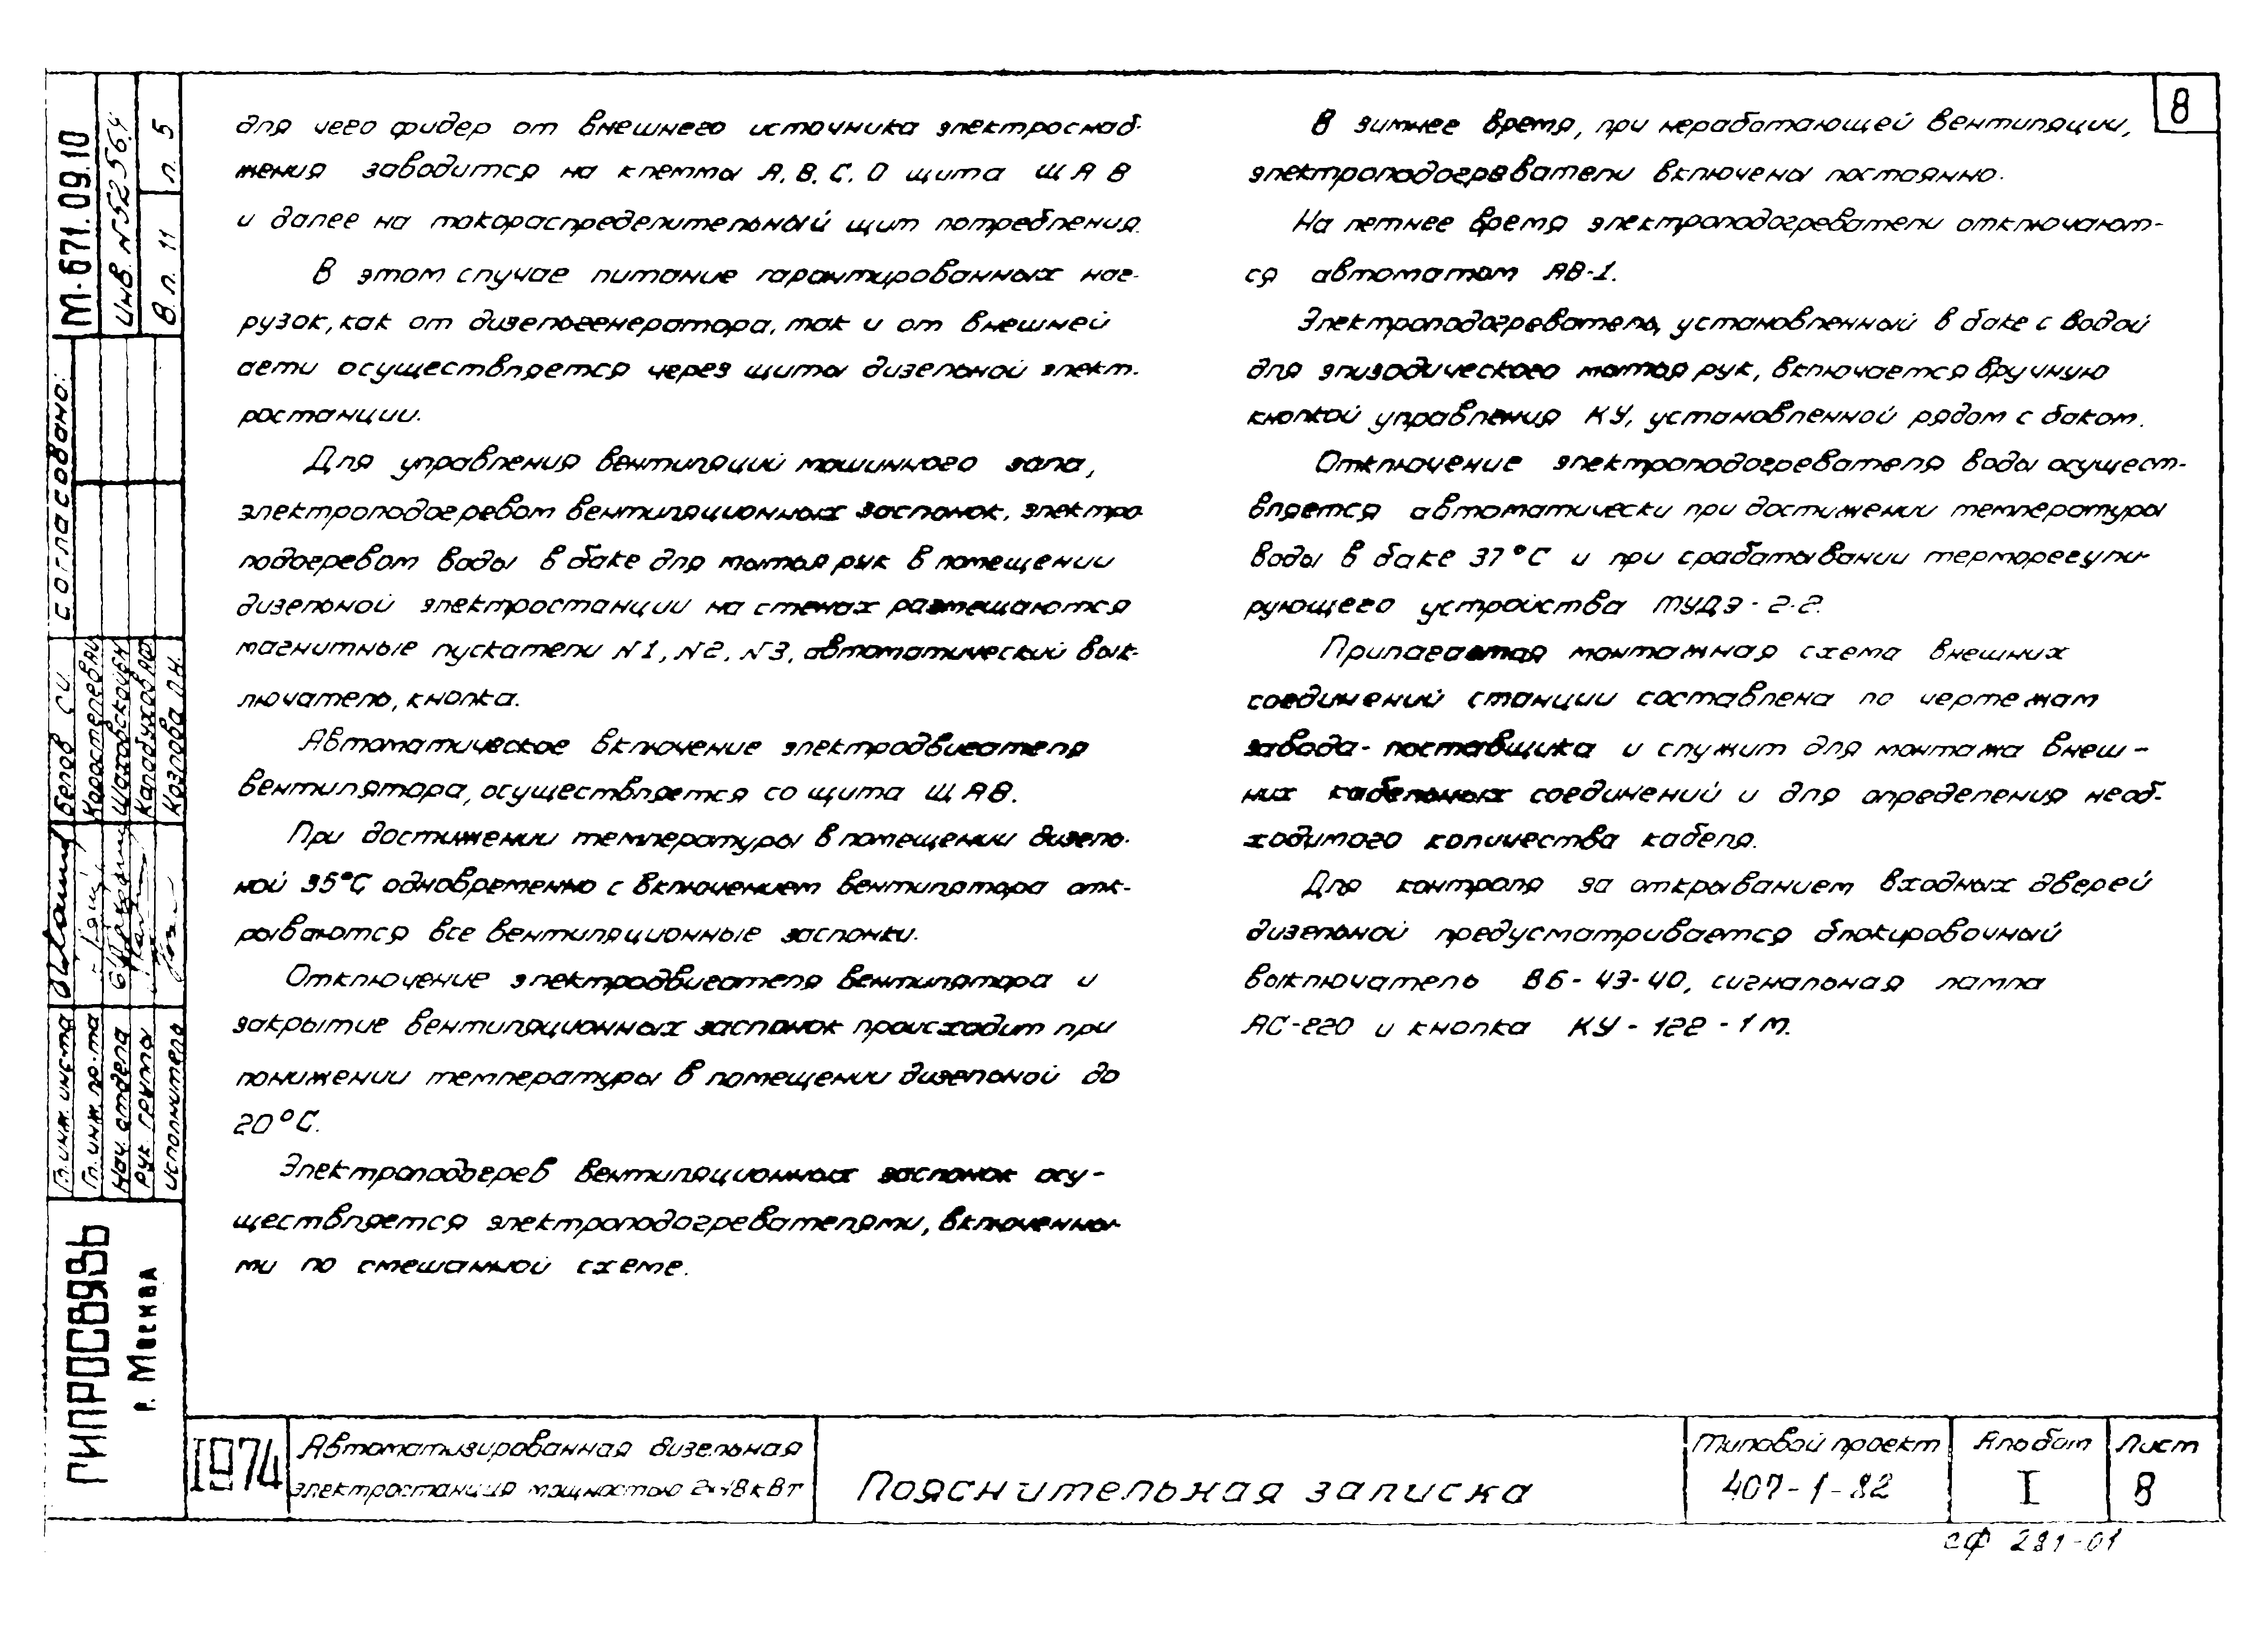 8
для чего фидер от внешнего источника электроснаб-
жения заводится на клеммы А, В, С, О щита ЩАВ
и далее на токораспределительный щит потребления.
В этом случае питание гарантированных наг-
рузок, как от дизельгенератора, так и от внешней
сети осуществляется через щиты дизельной элект-
ростанции.
Для управления вентиляцией машинного зала,
электроподогревом вентиляционных заслонок, электро-
подогревом воды в баке для мытья рук в помещении
дизельной электростанции на стенах размещаются
магнитные пускатели N1, N2, N3, автоматический вык-
лючатель, кнопка.
Автоматическое включение электродвигателя
вентилятора, осуществляется со щита ЩАВ.
При достижении температуры в помещении дизель-
ной 35°С одновременно с включением вентилятора отк-
рываются все вентиляционные заслонки.
Отключение электродвигателя вентилятора и
закрытие вентиляционных заслонок происходит при
понижении температуры в помещении дизельной до
20°С.
Электроподогрев вентиляционных заслонок осу-
ществляется электроподогревателями, включенны-
ми по смешанной схеме.
В зимнее время, при неработающей вентиляции,
электроподогреватели включены постоянно.
На летнее время электроподогреватели отключают-
ся автоматом АВ-1.
Электроподогреватель, установленный в баке с водой
для эпизодического мытья рук, включается вручную
кнопкой управления КУ, установленной рядом с баком.
Отключение электроподогревателя воды осущест-
вляется автоматически при достижении температуры
воды в баке 37°С и при срабатывании терморегули-
рующего устройства ТУДЭ-2.2.
Прилагаемая монтажная схема внешних
соединений станции составлена по чертежам
завода-поставщика и служит для монтажа внеш-
них кабельных соединений и для определения необ-
ходимого количества кабеля.
Для контроля за открыванием входных дверей
дизельной предусматривается блокировочный
выключатель ВБ-43-40, сигнальная лампа
АС-220 и кнопка КУ-122-1М.
М-671.09.10
Инв. N 52564
В.п. 11 л. 5
Согласовано:
Гл. инж. инс-та Белов С.И.
Гл. инж. пр-та
Нач. отдела
Рук. группы
Исполнитель Козлова
ГИПРОСВЯЗЬ
г. Москва
1974
Автоматизированная дизельная
электростанция мощностью 2×48 кВт
Пояснительная записка
Типовой проект
407-1-82
Альбом
I
Лист
8
сф 281-01